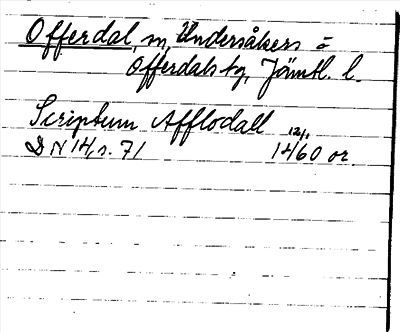 Offerdal, sn, Undersåkers o
Offerdals tg, Jämtl. l.
Scriptum Afflodall
12/1
DN 14, s. 71 1460 or.